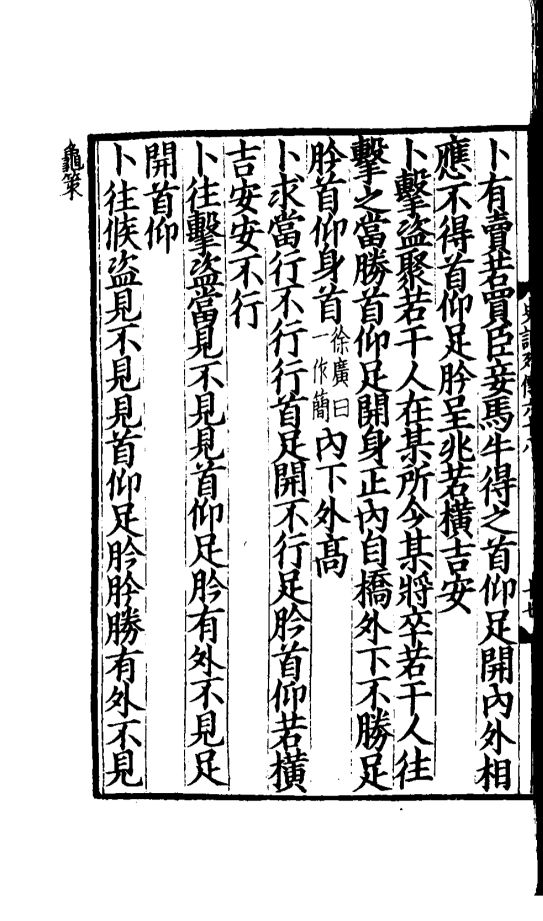 卜有賣若買臣妾馬牛得之首仰足開內外相
應不得首仰足肣呈兆若橫吉安
卜擊盜聚若干人在某所今某將卒若干人往
擊之當勝首仰足開身正內自橋外下不勝足
肣首仰身首徐廣曰一作簡內下外髙
卜求當行不行行首足開不行足肣首仰若橫
吉安安不行
卜往擊盜當見不見見首仰足肣有外不見足
開首仰
卜往候盜見不見見首仰足肣肣勝有外不見
龜策